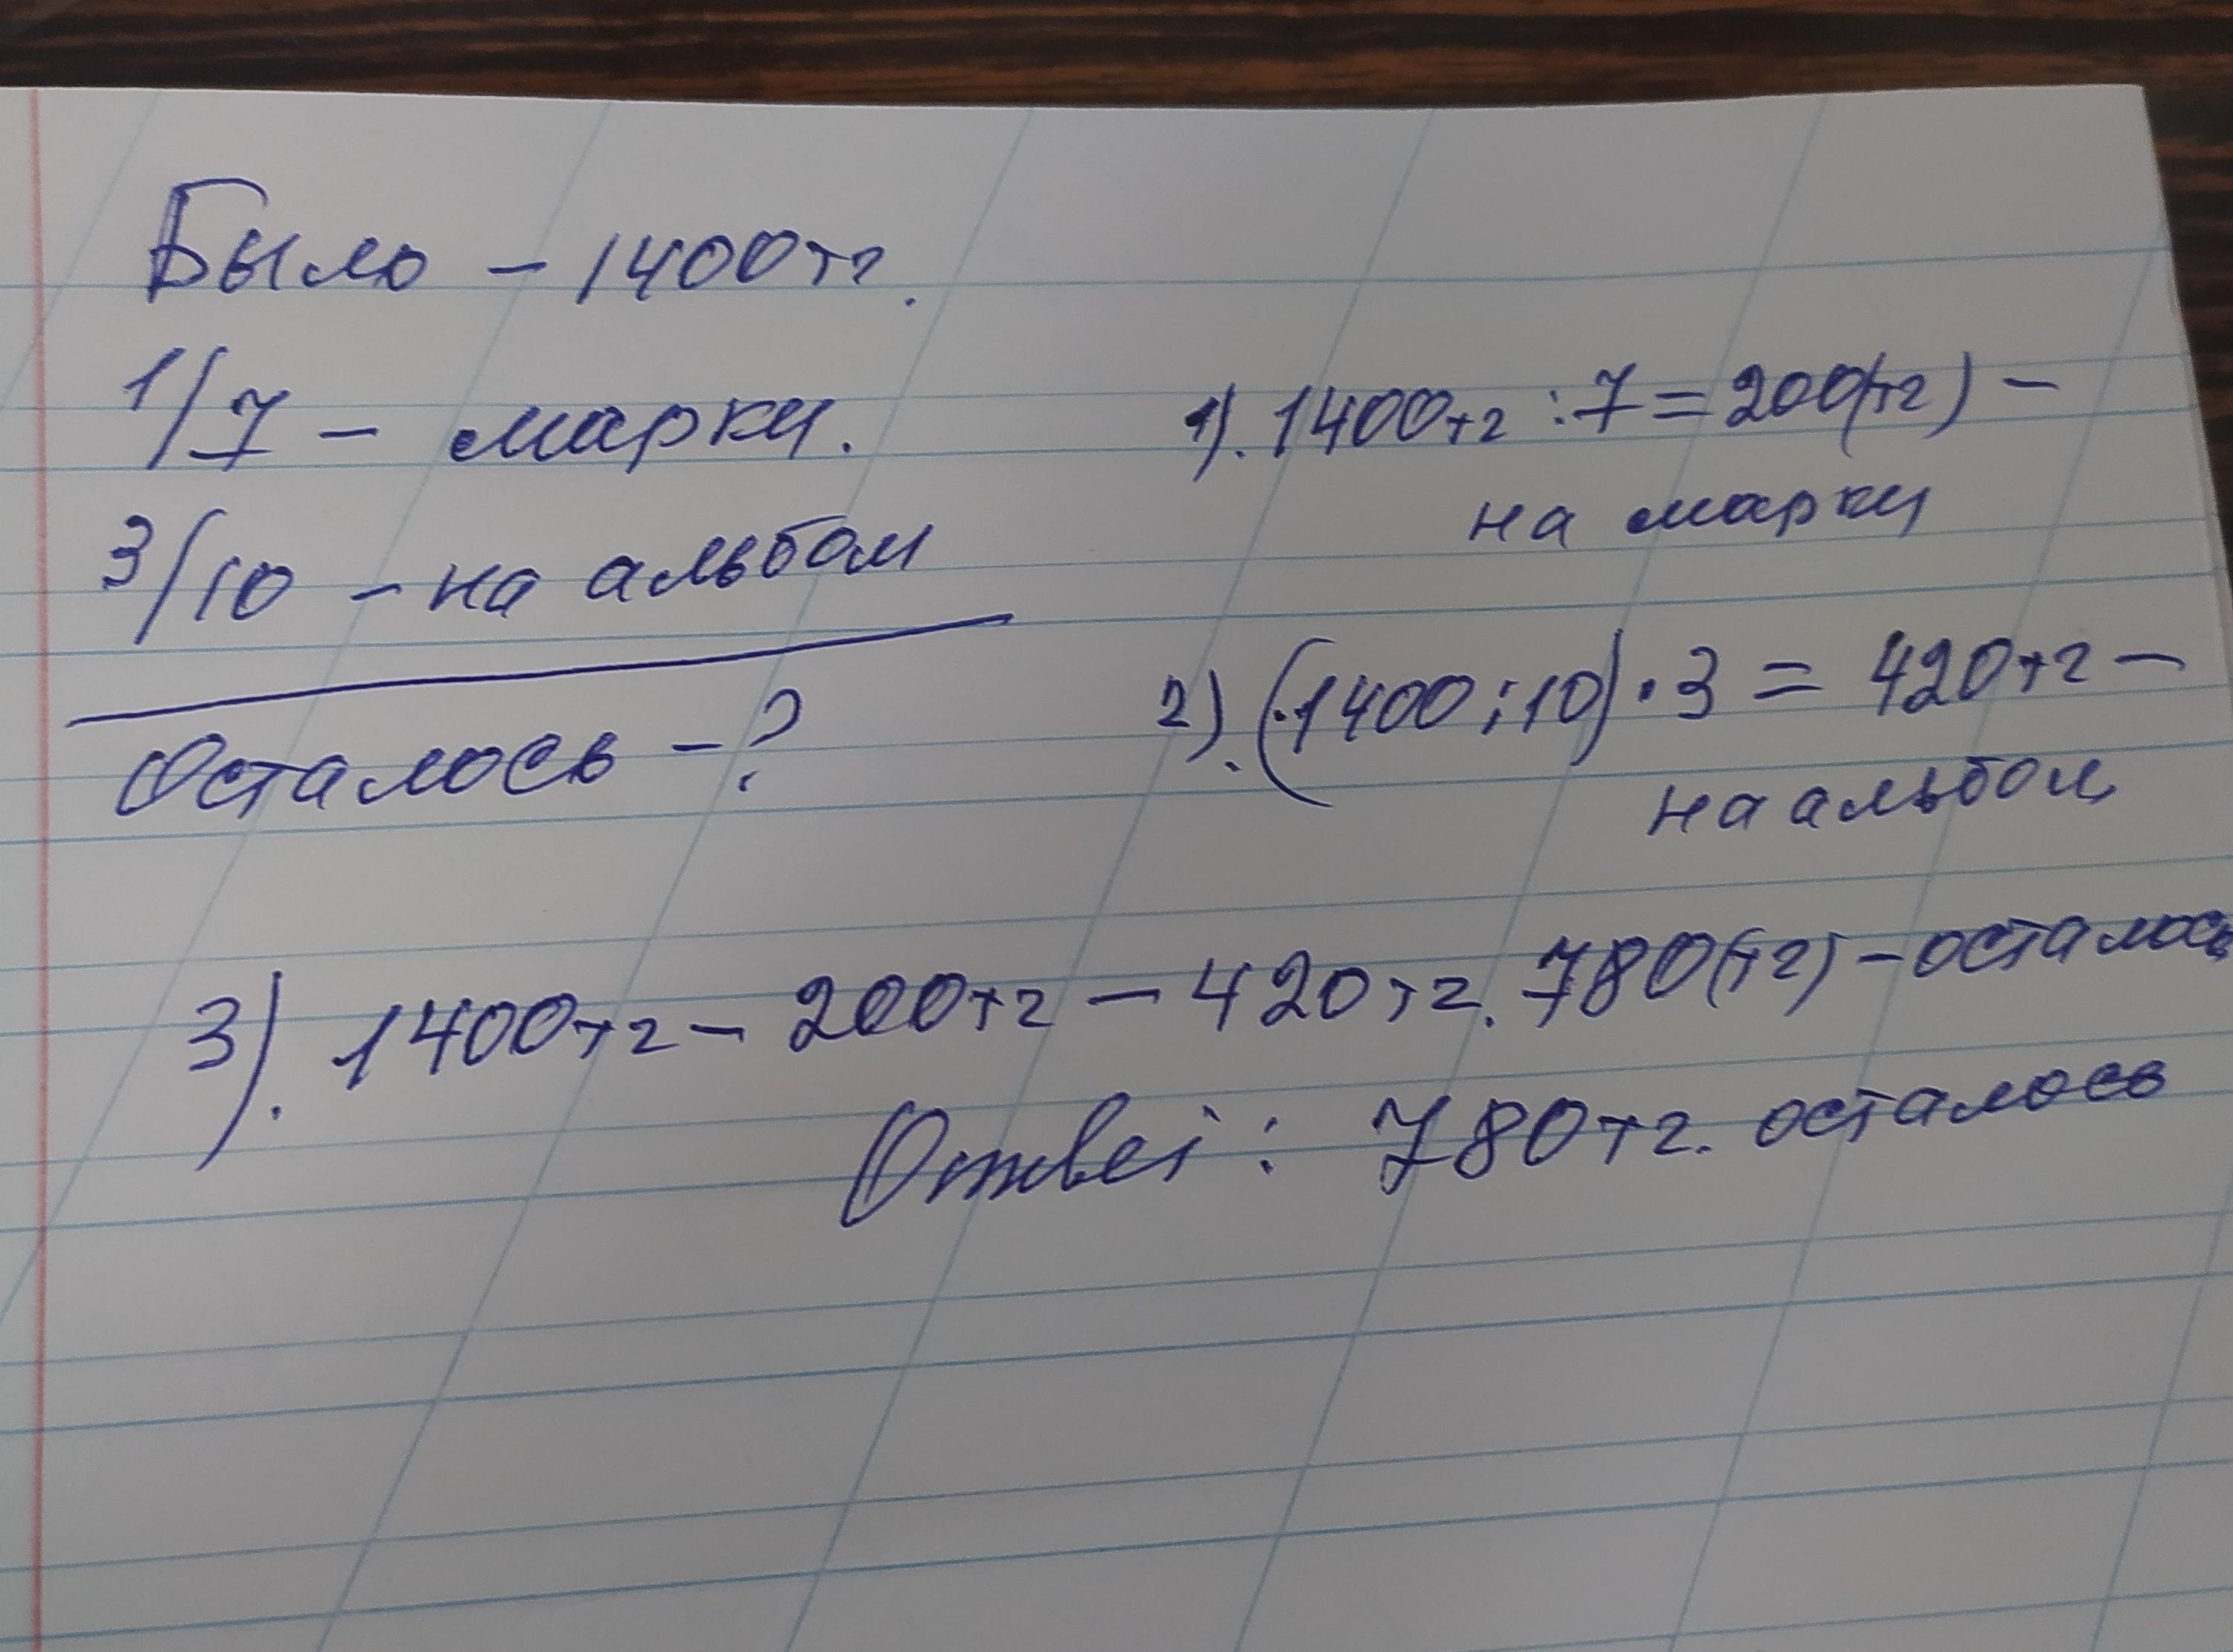 Было – 1400тг.
1/7 – марки.
3/10 – на альбом
Осталось – ?
1). 1400тг : 7 = 200(тг) –
на марки
2). (1400 : 10) · 3 = 420тг –
на альбом
3). 1400тг – 200тг – 420тг. 780(тг) – осталось
Ответ : 780тг. осталось